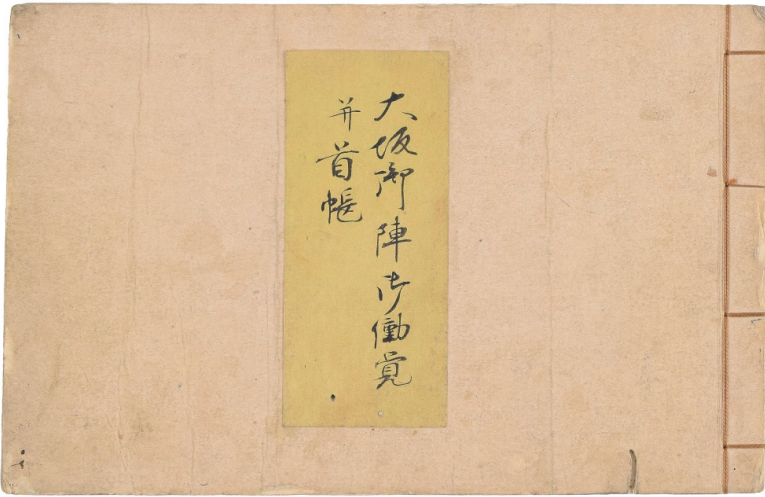 大坂御陣御働覚
并首帳